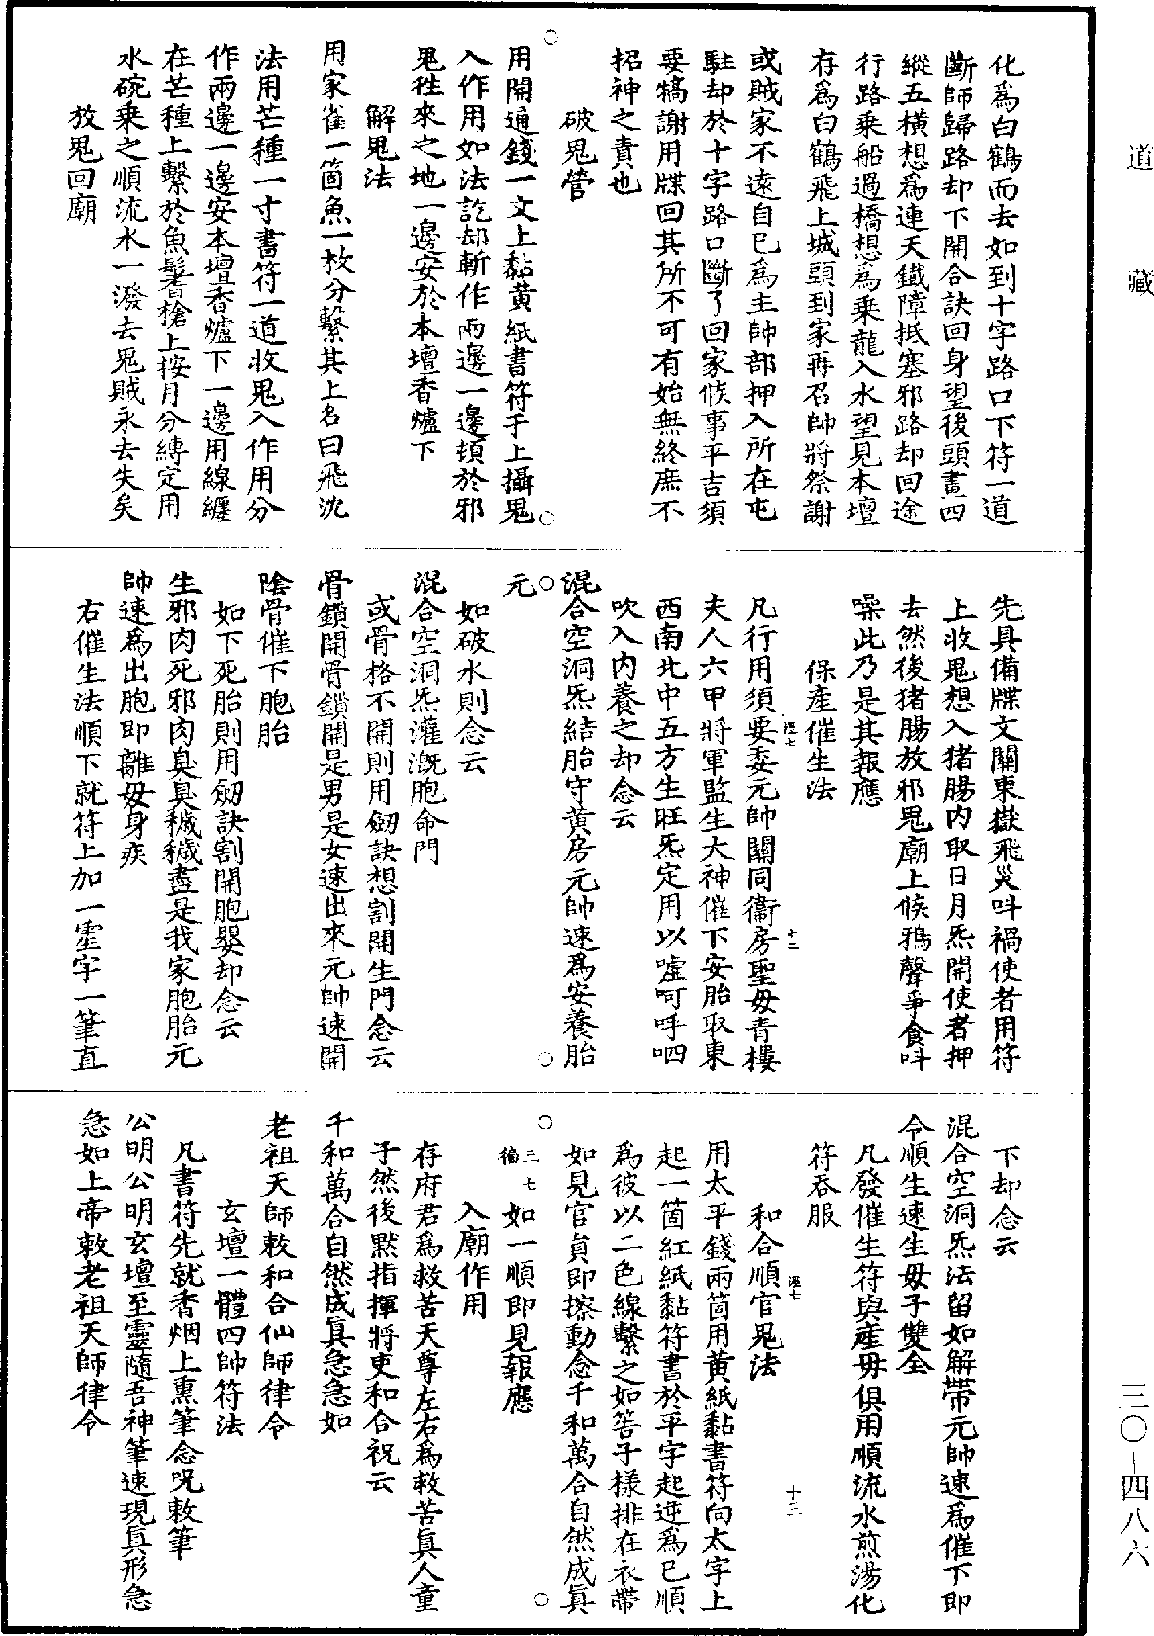 道藏
化爲白鶴而去如到十字路口下符一道
斷師歸路却下開合訣回身望後頭畫四
縱五橫想爲連天鐵障抵塞邪路却回途
行路乘船過橋想爲乘龍入水望見本壇
存爲白鶴飛上城頭到家再召帥將祭謝
或賊家不遠自已爲主帥部押入所在屯
駐却於十字路口斷了回家候事平吉須
要犒謝用牒回其所不可有始無終庶不
招神之責也
破鬼營
用開通錢一文上黏黃紙書符于上攝鬼
入作用如法訖却斬作兩邊一邊頓於邪
鬼徃來之地一邊安於本壇香爐下
解鬼法
用家雀一箇魚一枚分繫其上名曰飛沈
法用芒種一寸書符一道收鬼入作用分
作兩邊一邊安本壇香爐下一邊用線纏
在芒種上繫於魚鬐槍上按月分縛定用
水碗乘之順流水一潑去鬼賊永去失矣
放鬼回廟
先具備牒文關東嶽飛災呌禍使者用符
上收鬼想入猪腸內取日月炁開使者押
去然後猪腸放邪鬼廟上候鴉聲爭食呌
噪此乃是其報應
保產催生法
凡行用須要委元帥關同衞房聖母青樓
夫人六甲將軍監生大神催下安胎取東
西南北中五方生旺炁定用以噓呵呼呬
吹入內養之却念云
混合空洞炁結胎守黃房元帥速爲安養胎
元
如破水則念云
混合空洞炁灌溉胞命門
或骨格不開則用劒訣想割開生門念云
骨鎖開骨鎖開是男是女速出來元帥速開
陰骨催下胞胎
如下死胎則用劒訣割開胞嬰却念云
生邪肉死邪肉臭臭穢穢盡是我家胞胎元
帥速爲出胞即離母身疾
右催生法順下就符上加一䨩字一筆直
下却念云
混合空洞炁法留如解帶元帥速爲催下即
令順生速生母子雙全
凡發催生符與產母俱用順流水煎湯化
符吞服
和合順官鬼法
用太平錢兩箇用黃紙黏書符向太字上
起一箇紅紙黏符書於平字起逆爲已順
爲彼以二色線繫之如筶子樣排在衣帶
如見官員即擦動念千和萬合自然成眞
如一順即見報應
入廟作用
存府君爲救苦天尊左右爲救苦眞人童
子然後黙指揮將吏和合祝云
千和萬合自然成眞急急如
老祖天師敕和合仙師律令
玄壇一體四帥符法
凡書符先就香烟上熏筆念咒敕筆
公明公明玄壇至靈隨吾神筆速現眞形急
急如上帝敕老祖天師律令
三〇—四八六